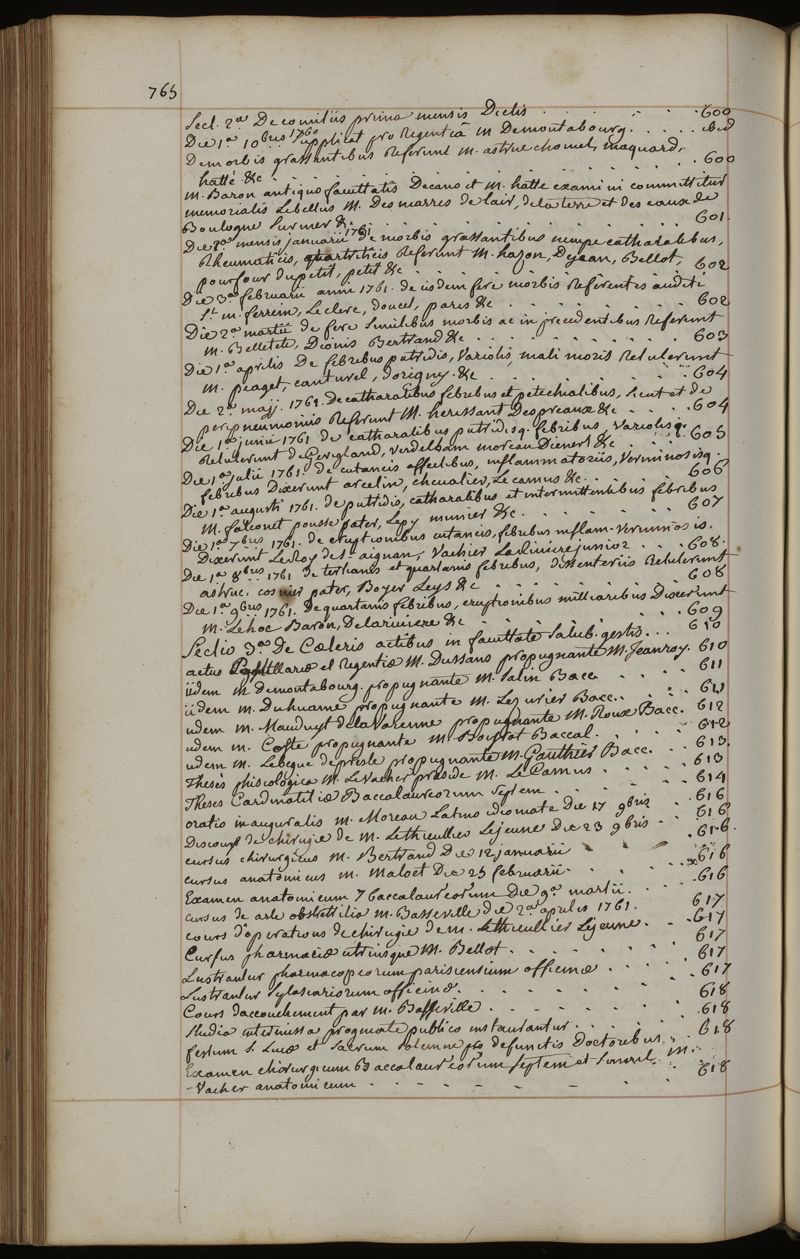 765
Sect. 2a De comitiis prima mensis Dictis . . . . . . 600
Die 1a 10bris 1760 supplicat pro Regentiâ M Demontabourg. . . . . ibid
De morbis grassantibus Referunt M. astruc chomel, maquard,
hatté &c . . . . . . . . . . . 600
M. Baron antiquo facultatis Decano et M. hatte examini committitur
memorialis Libellus M. Des marres de l'air, de la terre et des eaux de
Boulogne sur mer &c . . . . . . . . . . 601.
Die 2a mensis januarii 1761 de morbis grassantibus nempe catharalibus,
Rheumaticis, Referunt M. hazon, Dejean, Bellot,
pourfour dupetit, petit &c . . . . . . . . 602
Die 3a februarii anni 1761. de iisdem fere morbis Referentes auditi
St M. ferrein, Le clerc, doucet, paris &c . . . . . . 602
Die 2a martii de fere similibus morbis ac in precedentibus Referunt
M. Belletete, Dionis Bertrand &c . . . . . . . . 603
Die 1a aprilis De febribus putridis, Variolis mali moris Retulerunt
M. peaget, canturel, Dorigny. &c . . . . . . 604
Die 2a maji. 1761. De catharalibus febribus et petechialibus, sicut et de
peripneumoniis Referunt M. herissant Despreaux &c . . . . 604
Die 1a junii 1761 de catharalibus putridisq. febribus, Variolisq.
Retulerunt de Gevigland, Verdelham moreau Dienert &c . . . . 605
Die 1a julii 1761. de cutaneis affectibus, inflammatoriis, Verminosisq.
febribus Dixerunt arcelin, chevalier, Le camus &c . . . . . 606
Die 1a augusti 1761. de putridis, catharalibus et intermittentibus febribus
M. falconet pousse pater, Lepy munier &c . . . . . . 607
Die 1a 7bris 1761. de eruptionibus cutaneis, febribus inflam. Verminosis.
Dixerunt Le Roy de St aignan, Vachier Lariviere junior . . . 608.
Die 1a 8bris 1761 de tertianis et quartanis febribus, dissenteriis Retulerunt
astruc, cosnier pater, Boyer Leys &c . . . . . . 608
Die 1a 9bris 1761. De quartanis febribus, eruptionibus milliaribus Dixerunt
M. Lehoc Baron, Delariviere &c . . . . . . . 609
Sectio 3a De Cœteris actibus in facultate Salub. gestis. . . 610
actus Pastillariæ et Regentiæ M. Dussans propugnante M. Jeanroy. 610
iidem M Demontabourg. propugnante M. Salin Bacc. . . . 611
iidem M. Duhaume propugnante M. Lezurier Bacc. . . . . 611
iidem M. Mauduyt de la Varenne propugnante M. Roux Bacc. 612
iidem M. Coste propugnante M. Boyrot Baccal. . . . . 612
iidem M. Lebegue depresle propugnante M. Gauthier Bacc. . . 613.
Thesis phisologica M. Le Vacher præside M. Le Camus . . . . 613
Theses Cardinalitiæ Baccalaureorum Septem . . . . . 614
oratio inauguralis M. Moreau Latino idiomate Die 17 9bris . . 616
Discours de chirugie de M. Lethieullier Lejeune Die 23 9bris . . . 616
cursus chirurgicus M. Bertrand Die 12 januarii . . . . 616.
cursus anatomicus M. Maloet Die 25 februarii. . . . . 616
Examen anatomicum 7 Baccalaureorum Die 9a martii. . . . 616
cursus de arte obstetritia M. Basseville die 2a aprilis 1761. . 617
cours d'operations de chirugie de m. Lethieullier Lejeune . . . 617
Cursus pharmaciæ utriusque M. Bellot . . . . . . . 617
Lustrantur pharmacopeorum parisiensium officinæ . . . . . 617
Lustrantur Aylosiariorum officinæ. . . . . . . . 617
Cours d'accouchement par M. Basseville . . . . . . . 618
Studia intermissa progmate publico instaurantur . . . . . 618
festum S. Lucæ et Sacrum Solemne pro defunctis Doctoribus . . 618
Examen chirurgicum Baccalaureorum Septem et Simul M.
-Vacher anatomicum . . . . . . . . 618